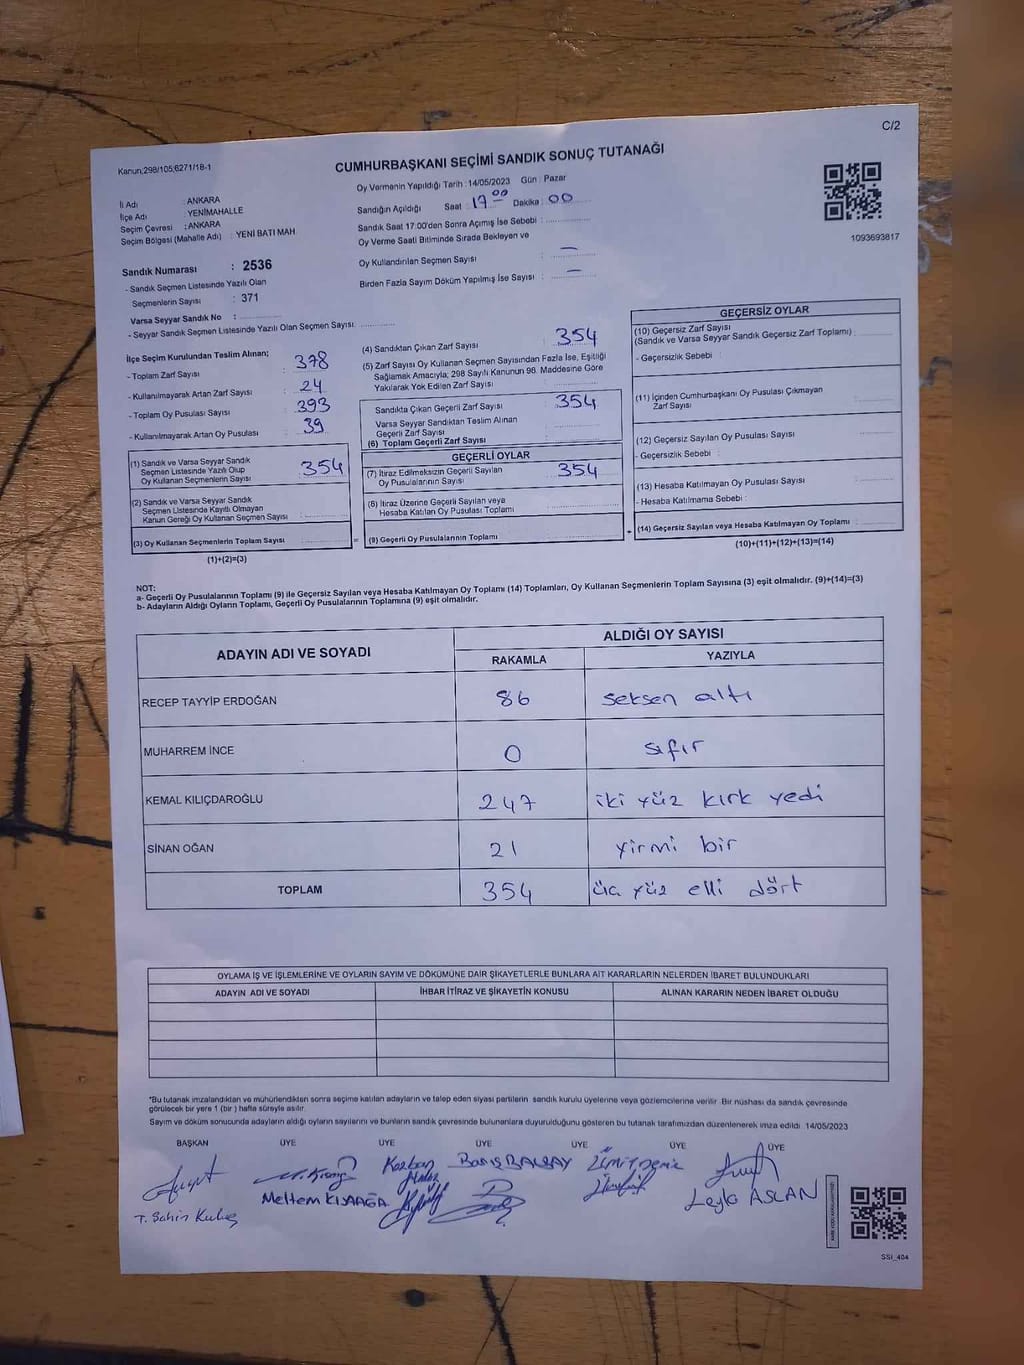 C/2
Kanun;298/105;6271/18-1
CUMHURBAŞKANI SEÇİMİ SANDIK SONUÇ TUTANAĞI
İl Adı : ANKARA
İlçe Adı : YENİMAHALLE
Seçim Çevresi : ANKARA
Seçim Bölgesi (Mahalle Adı) : YENİ BATI MAH
Oy Vermenin Yapıldığı Tarih : 14/05/2023 Gün : Pazar
Sandığın Açıldığı Saat : 17 00 Dakika : 00
Sandık Saat 17:00'den Sonra Açımış İse Sebebi :
Oy Verme Saati Bitiminde Sırada Bekleyen ve
Oy Kullandırılan Seçmen Sayısı : —
Birden Fazla Sayım Döküm Yapılmış İse Sayısı : —
1093693817
Sandık Numarası : 2536
- Sandık Seçmen Listesinde Yazılı Olan
Seçmenlerin Sayısı : 371
Varsa Seyyar Sandık No :
- Seyyar Sandık Seçmen Listesinde Yazılı Olan Seçmen Sayısı:
İlçe Seçim Kurulundan Teslim Alınan;
- Toplam Zarf Sayısı : 378
- Kullanılmayarak Artan Zarf Sayısı : 24
- Toplam Oy Pusulası Sayısı : 393
- Kullanılmayarak Artan Oy Pusulası : 39
(1) Sandık ve Varsa Seyyar Sandık
Seçmen Listesinde Yazılı Olup
Oy Kullanan Seçmenlerin Sayısı : 354
(2) Sandık ve Varsa Seyyar Sandık
Seçmen Listesinde Kayıtlı Olmayan
Kanun Gereği Oy Kullanan Seçmen Sayısı :
(3) Oy Kullanan Seçmenlerin Toplam Sayısı
(1)+(2)=(3)
(4) Sandıktan Çıkan Zarf Sayısı : 354
(5) Zarf Sayısı Oy Kullanan Seçmen Sayısından Fazla İse, Eşitliği
Sağlamak Amacıyla; 298 Sayılı Kanunun 98. Maddesine Göre
Yakılarak Yok Edilen Zarf Sayısı :
Sandıkta Çıkan Geçerli Zarf Sayısı : 354
Varsa Seyyar Sandıktan Teslim Alınan
Geçerli Zarf Sayısı :
(6) Toplam Geçerli Zarf Sayısı :
GEÇERLİ OYLAR
(7) İtiraz Edilmeksizin Geçerli Sayılan
Oy Pusulalarının Sayısı : 354
(8) İtiraz Üzerine Geçerli Sayılan veya
Hesaba Katılan Oy Pusulası Toplamı :
= (9) Geçerli Oy Pusulalarının Toplamı
GEÇERSİZ OYLAR
(10) Geçersiz Zarf Sayısı
(Sandık ve Varsa Seyyar Sandık Geçersiz Zarf Toplamı) :
- Geçersizlik Sebebi :
(11) İçinden Cumhurbaşkanı Oy Pusulası Çıkmayan
Zarf Sayısı :
(12) Geçersiz Sayılan Oy Pusulası Sayısı :
- Geçersizlik Sebebi :
(13) Hesaba Katılmayan Oy Pusulası Sayısı :
- Hesaba Katılmama Sebebi :
+ (14) Geçersiz Sayılan veya Hesaba Katılmayan Oy Toplamı :
(10)+(11)+(12)+(13)=(14)
NOT:
a- Geçerli Oy Pusulalarının Toplamı (9) ile Geçersiz Sayılan veya Hesaba Katılmayan Oy Toplamı (14) Toplamları, Oy Kullanan Seçmenlerin Toplam Sayısına (3) eşit olmalıdır. (9)+(14)=(3)
b- Adayların Aldığı Oyların Toplamı, Geçerli Oy Pusulalarının Toplamına (9) eşit olmalıdır.
ADAYIN ADI VE SOYADI ALDIĞI OY SAYISI
RAKAMLA YAZIYLA
RECEP TAYYİP ERDOĞAN 86 seksen altı
MUHARREM İNCE 0 sıfır
KEMAL KILIÇDAROĞLU 247 iki yüz kırk yedi
SİNAN OĞAN 21 yirmi bir
TOPLAM 354 üç yüz elli dört
OYLAMA İŞ VE İŞLEMLERİNE VE OYLARIN SAYIM VE DÖKÜMÜNE DAİR ŞİKAYETLERLE BUNLARA AİT KARARLARIN NELERDEN İBARET BULUNDUKLARI
ADAYIN ADI VE SOYADI İHBAR İTİRAZ VE ŞİKAYETİN KONUSU ALINAN KARARIN NEDEN İBARET OLDUĞU
*Bu tutanak imzalandıktan ve mühürlendikten sonra seçime katılan adayların ve talep eden siyasi partilerin sandık kurulu üyelerine veya gözlemcilerine verilir. Bir nüshası da sandık çevresinde
görülecek bir yere 1 (bir) hafta süreyle asılır.
Sayım ve döküm sonucunda adayların aldığı oyların sayılarını ve bunların sandık çevresinde bulunanlara duyurulduğunu gösteren bu tutanak tarafımızdan düzenlenerek imza edildi. 14/05/2023
BAŞKAN ÜYE ÜYE ÜYE ÜYE ÜYE ÜYE
Barış BALBAY
Meltem KISAAĞA
Leyla ASLAN
T. Şahin
SSI_404